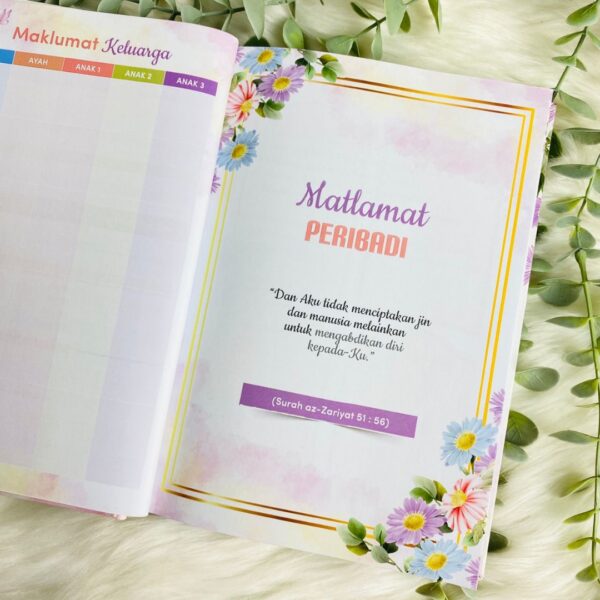 Maklumat Keluarga
AYAH ANAK 1 ANAK 2 ANAK 3
Matlamat
PERIBADI
"Dan Aku tidak menciptakan jin
dan manusia melainkan
untuk mengabdikan diri
kepada-Ku."
(Surah az-Zariyat 51 : 56)